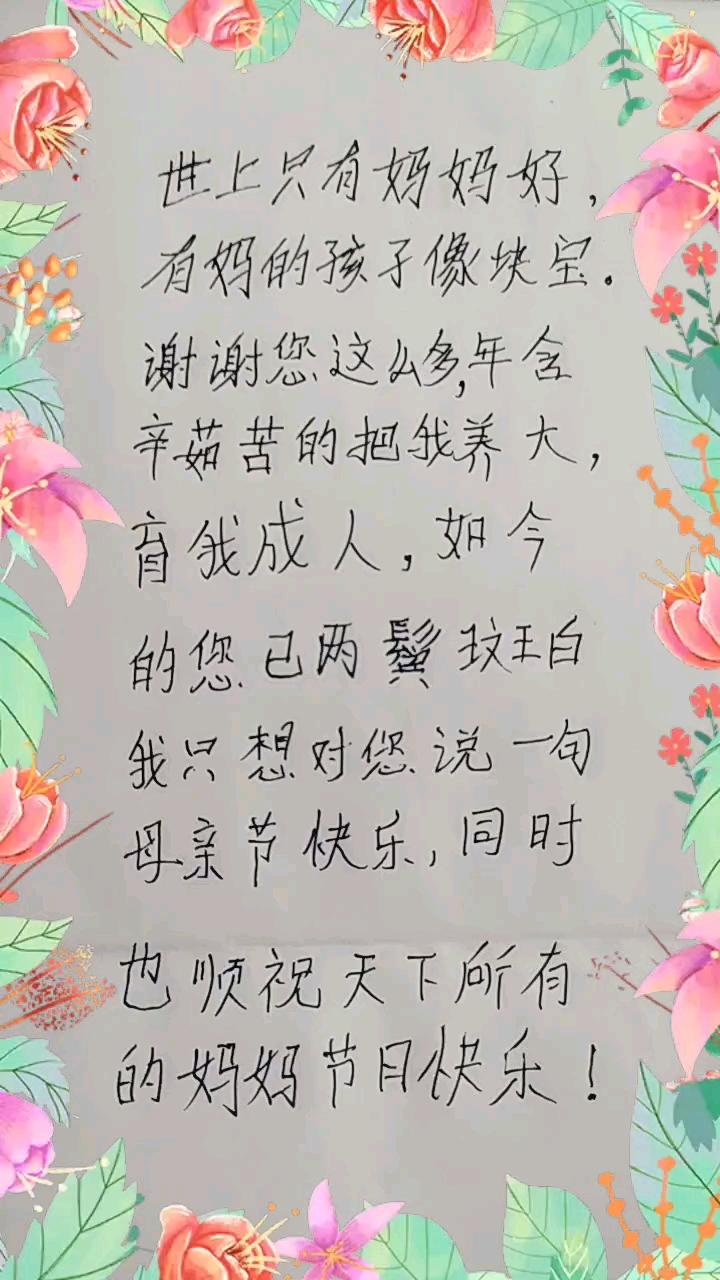 世上只有妈妈好，
有妈的孩子像块宝。
谢谢您这么多,年含
辛茹苦的把我养大，
育我成人，如今
的您已两鬓玟王白
我只想对您说一句
母亲节快乐，同时
也顺祝天下所有
的妈妈节日快乐！